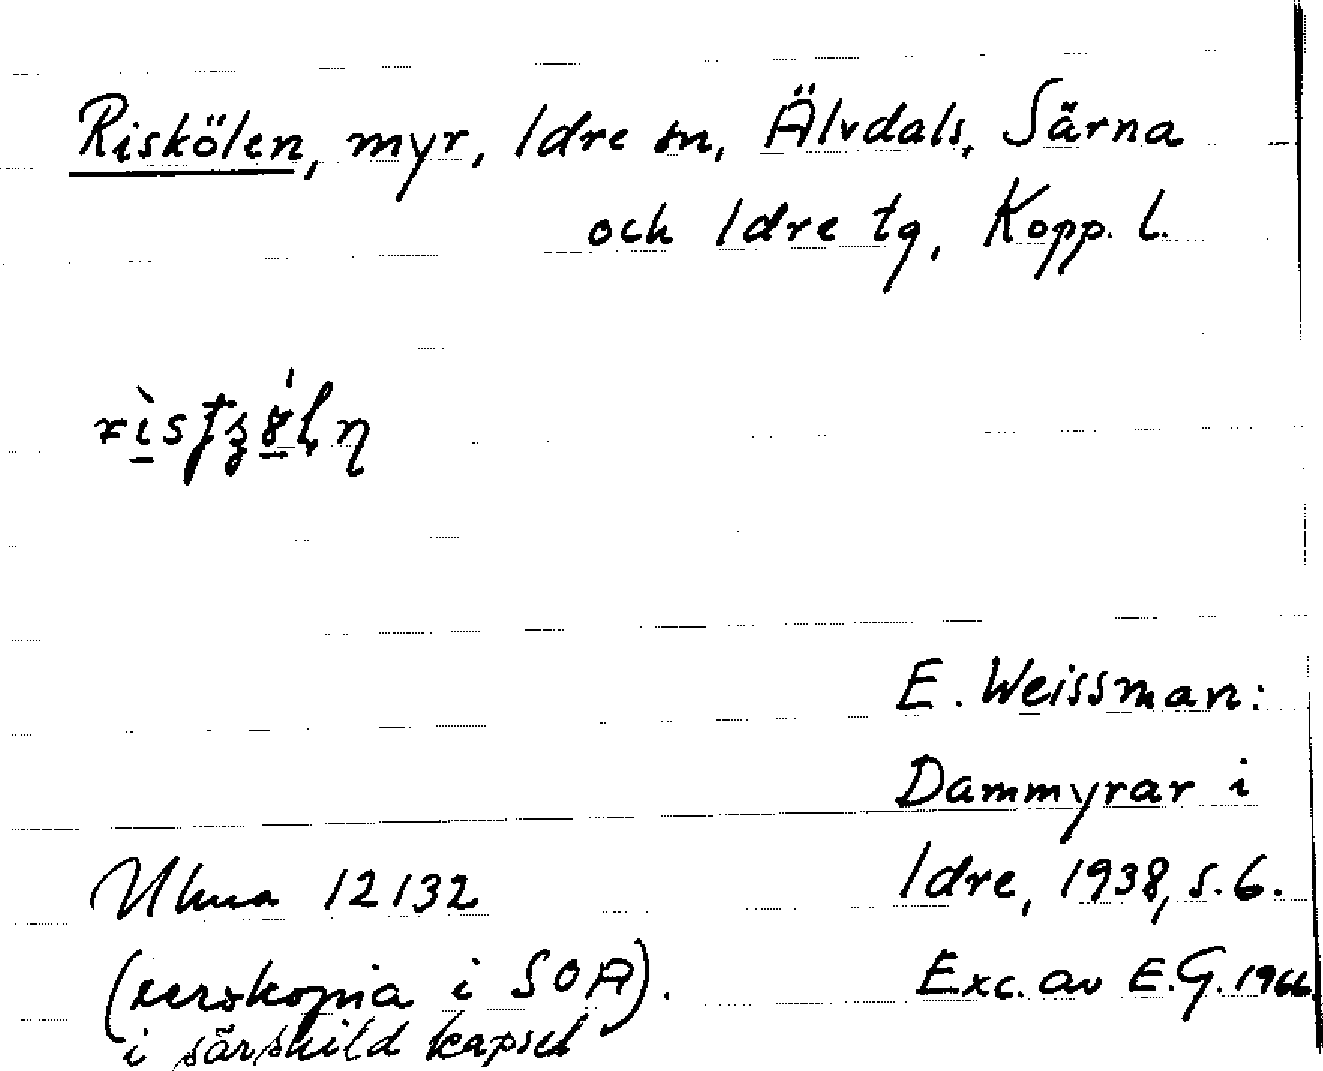 Riskölen, myr, Idre sn, Älvdals, Särna
och Idre tg, Kopp. l.
E. Weissman:
Dammyrar i
Idre, 1938, s. 6.
Exc. av E.G. 1966
Ulma 12132
(xeroxkopia i SOA).
i särskild kapsel